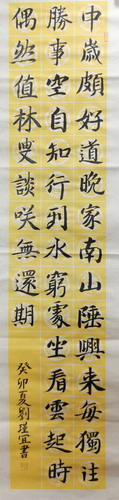 中歲頗好道晚家南山陲興来每獨往
勝事空自知行到水窮處坐看雲起時
偶然值林叟談咲無還期
癸卯夏劉瑾宜書